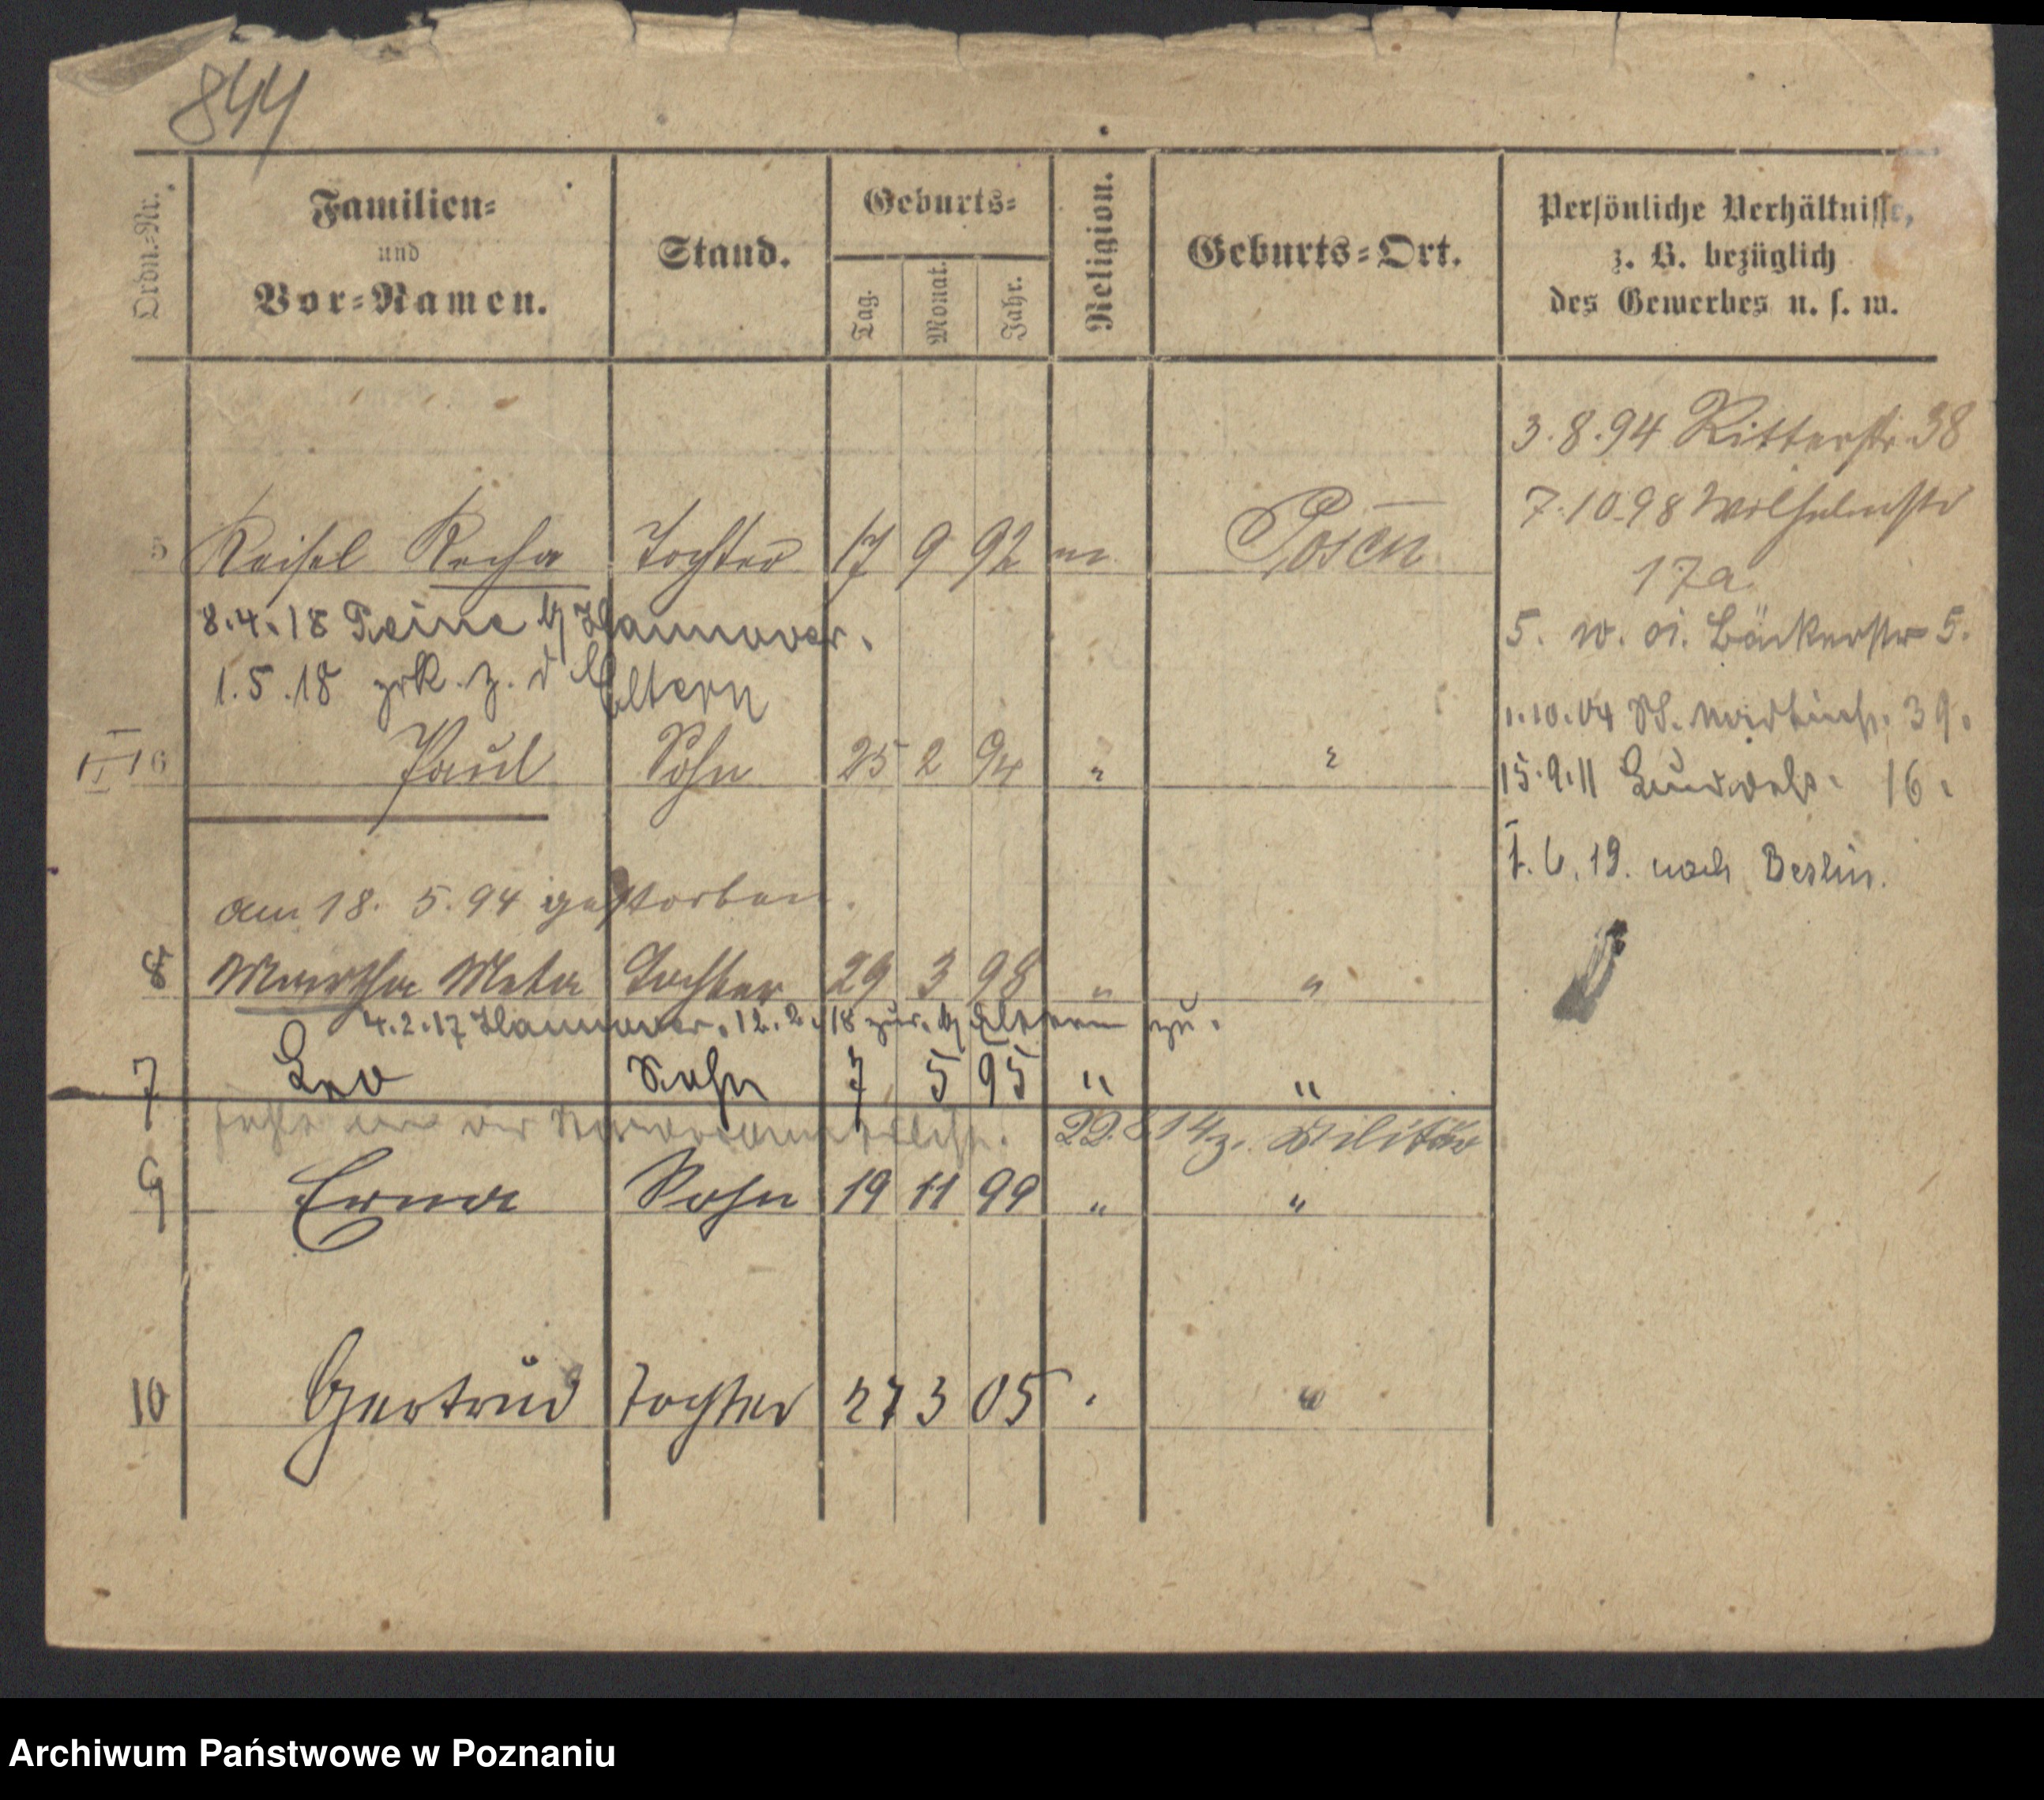 844
Ordn.-Nr.
Familien-
und
Vor-Namen.
Stand.
Geburts-
Tag.
Monat.
Jahr.
Religion.
Geburts-Ort.
Persönliche Verhältnisse,
z. B. bezüglich
des Gewerbes u. s. w.
3.8.94 Ritterstr. 38
7.10.98 Wilhelmstr
17a
5 Recha Tochter 17 9 92 m Posen
8.4.18 Peine b/ Hannover.
1.5.18 zrk. z. d Eltern
5. Bäckerstr 5.
1.10.04 39.
6 Paul Sohn 25 2 94 " "
15.9.11 16.
1.6.19. nach Berlin.
am 18. 5. 94 gestorben.
8 Martha Meta Tochter 29 3 98 " "
4.2.17 Hannover. 12.2.18 zur. b/ Eltern zu.
7 Leo Sohn 7 5 95 " "
fehlt in der
22.8.14 z. Militär
9 Erna Sohn 19 11 99 " "
10 Gertrud Tochter 27 3 05 " "
Archiwum Państwowe w Poznaniu